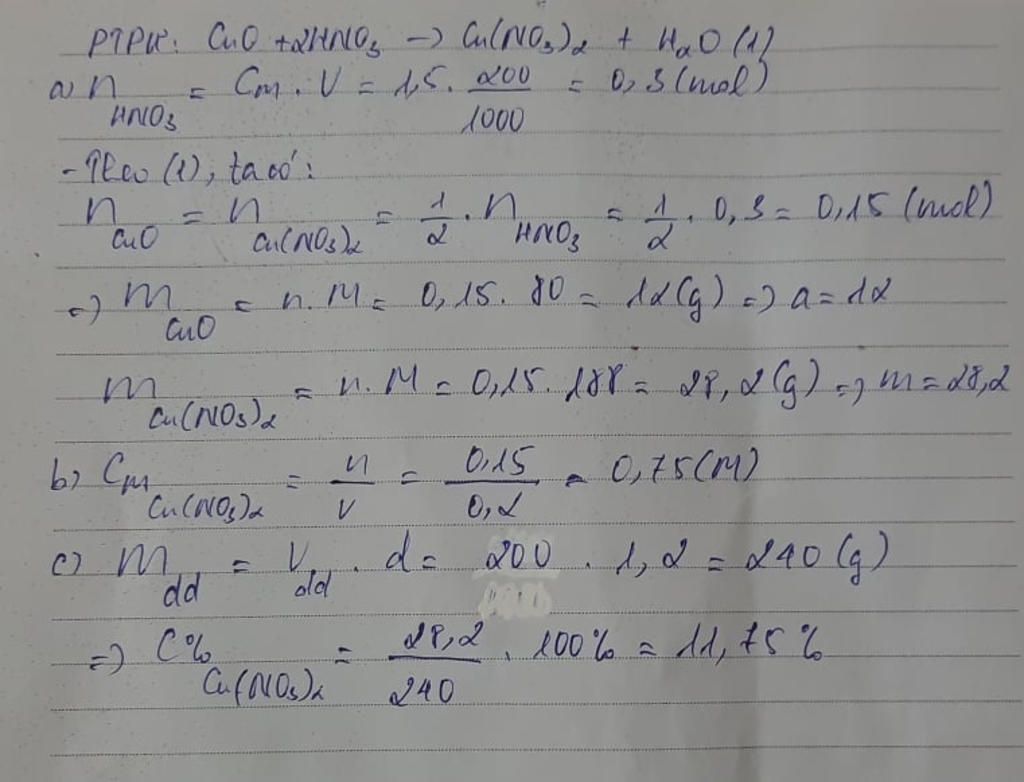 PTPƯ: CuO + 2HNO3 → Cu(NO3)2 + H2O (1)
a) nHNO3 = CM . V = 1,5 . 200/1000 = 0,3 (mol)
- Theo (1), ta có:
nCuO = nCu(NO3)2 = 1/2 . nHNO3 = 1/2 . 0,3 = 0,15 (mol)
=> mCuO = n.M = 0,15 . 80 = 12 (g) => a = 12
mCu(NO3)2 = n.M = 0,15 . 188 = 28,2 (g) => m = 28,2
b) CM Cu(NO3)2 = n/V = 0,15/0,2 = 0,75 (M)
c) mdd = Vdd . d = 200 . 1,2 = 240 (g)
=> C% Cu(NO3)2 = 28,2/240 . 100% = 11,75 %